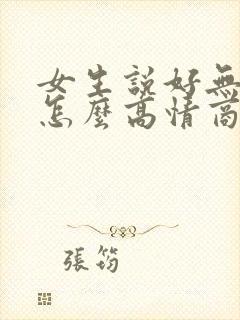 女生説好無
怎麼高情商
張筠